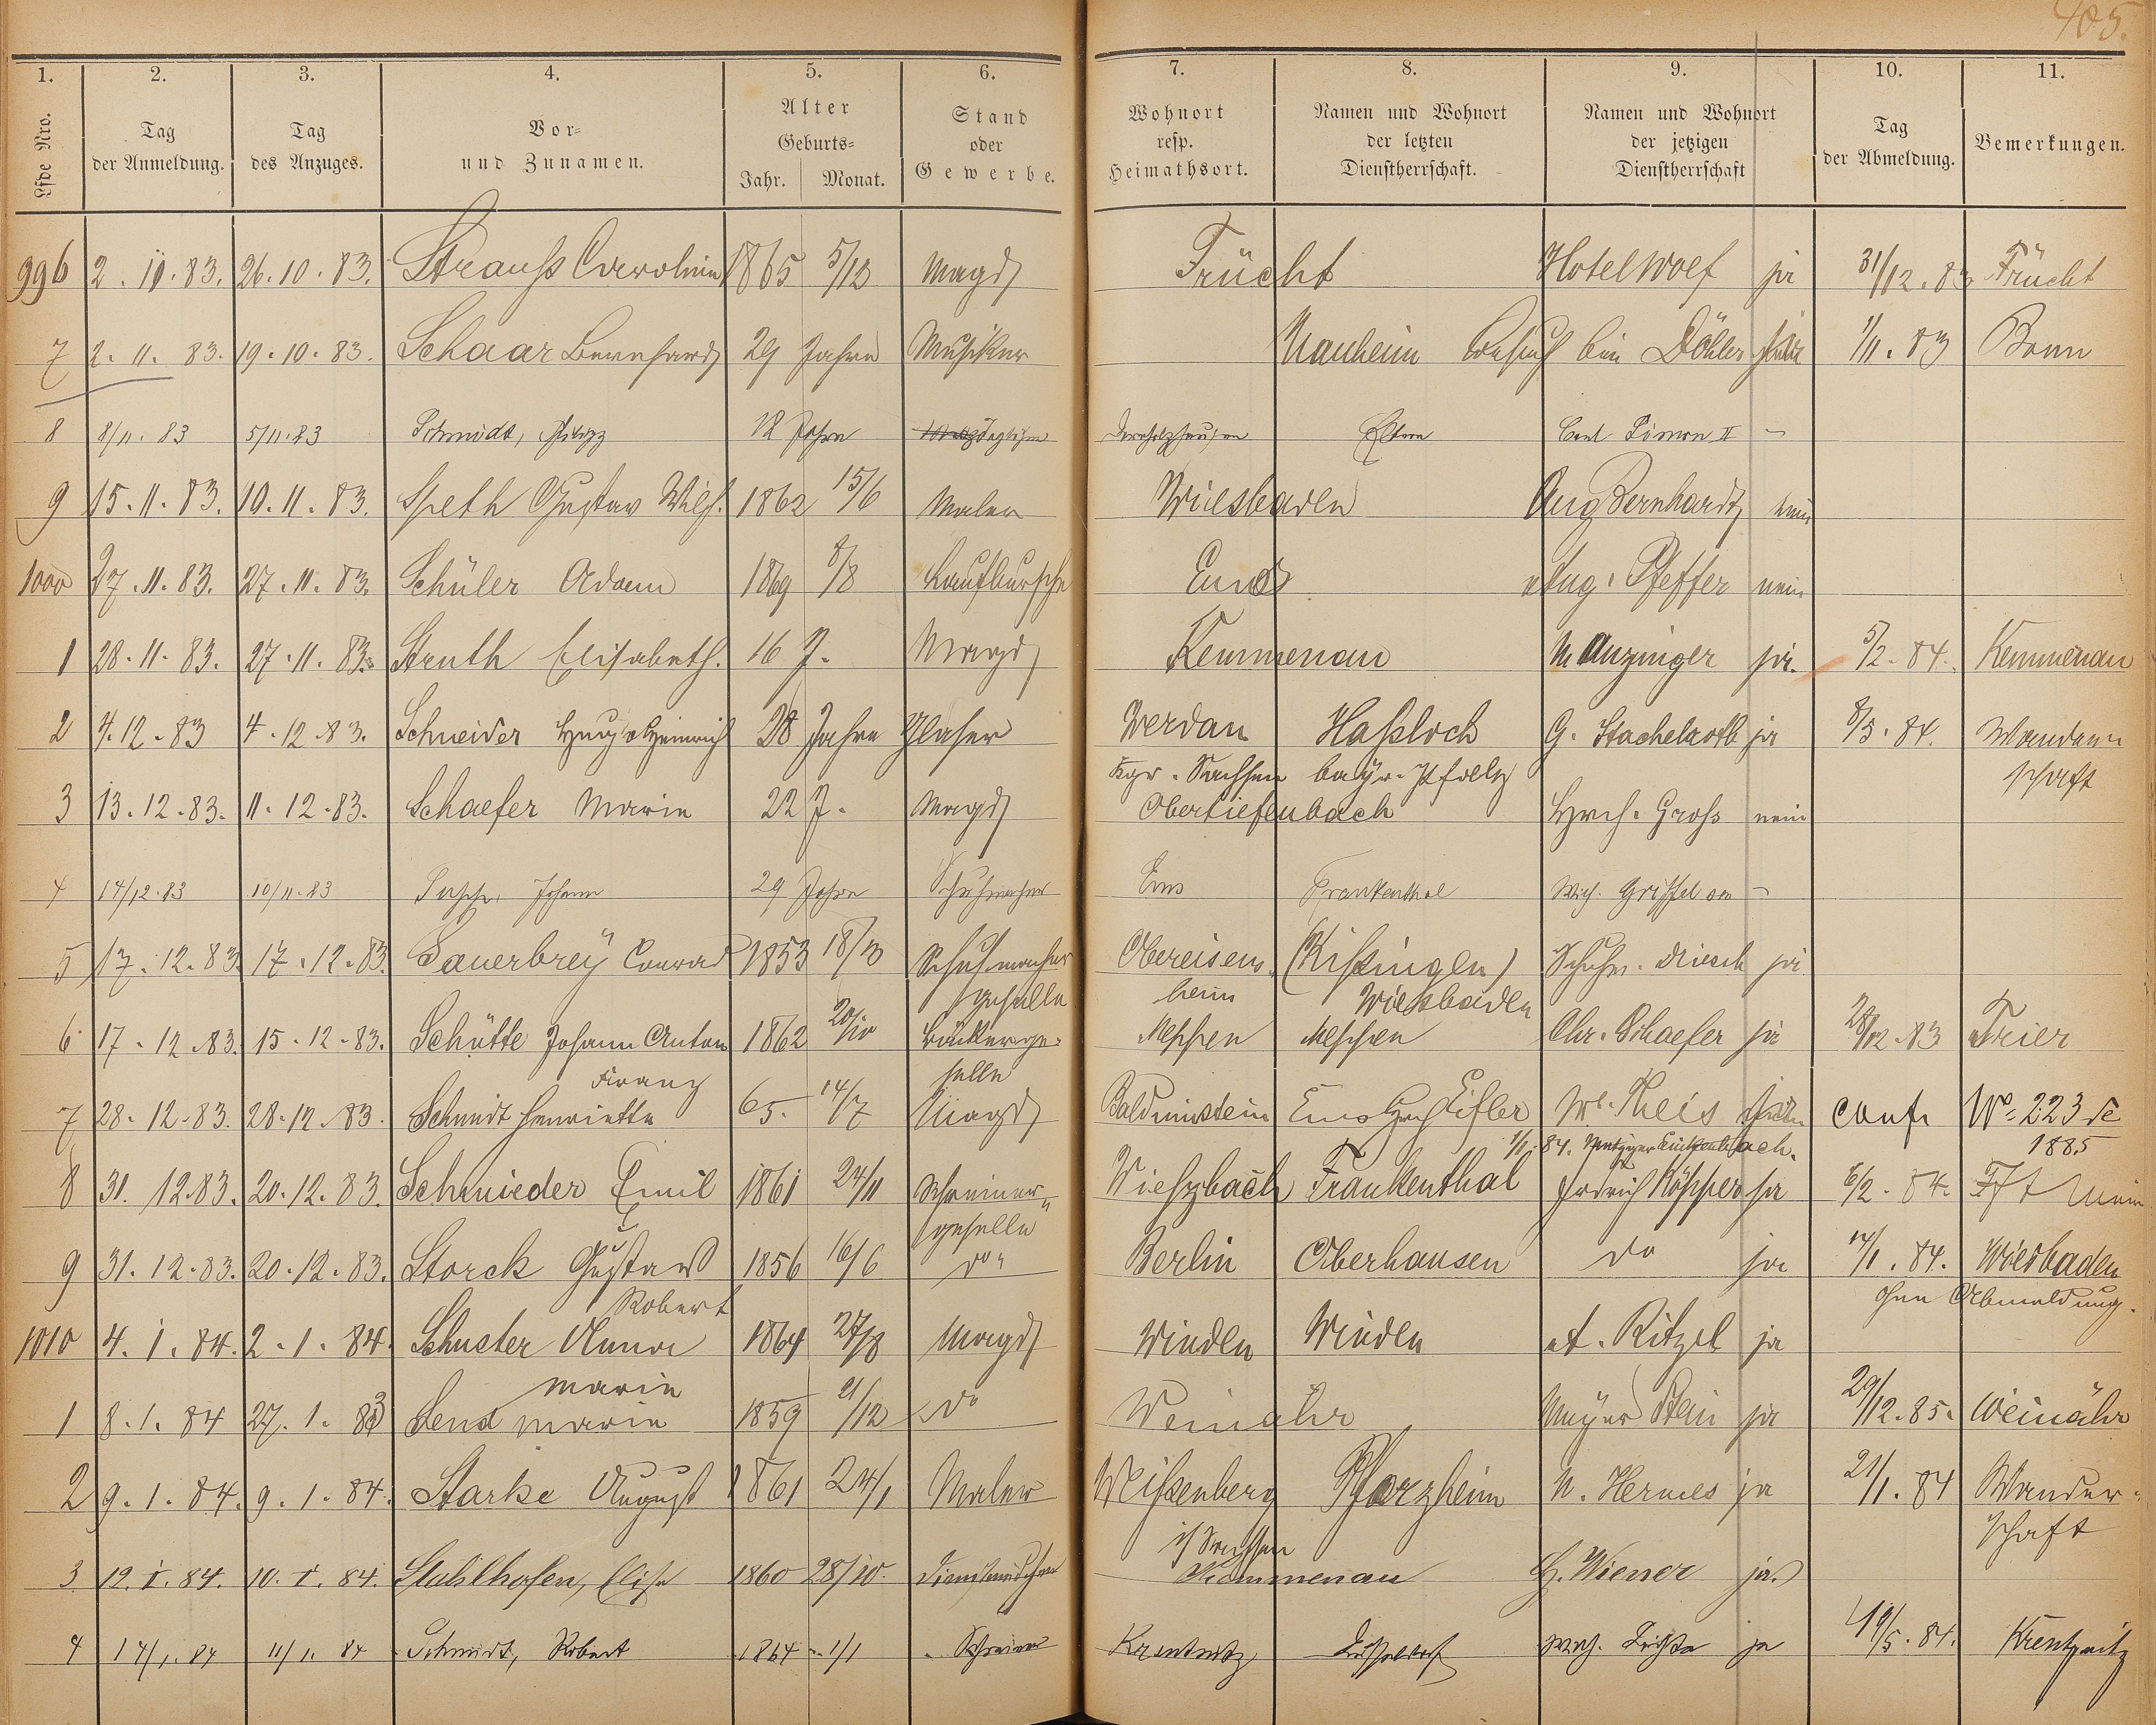 405.
1. 2. 3. 4. 5. 6. 7. 8. 9. 10. 11.
Lfde Nro. Tag der Anmeldung. Tag des Anzuges. Vor- und Zunamen. Alter Geburts- Jahr. Monat. Stand oder Gewerbe. Wohnort resp. Heimathsort. Namen und Wohnort der letzten Dienstherrschaft. Namen und Wohnort der jetzigen Dienstherrschaft Tag der Abmeldung. Bemerkungen.
996 2. 11. 83. 26. 10. 83. Strauß Carolina 1865 5/12 Magd Frücht Hotel Wolf ja 31/12. 83 Frücht
7 2. 11. 83. 19. 10. 83. Schaar Bernhard 29 Jahre Musiker Manheim Besuch bei Döhler 1/11. 83 Bonn
8 8/11. 83 5/11. 83 Schmidt, Philipp 18 Jahre Dornholzhausen Eltern Carl Simon II –
9 15. 11. 83. 10. 11. 83. Speth Gustav Wilh. 1862 15/6 Maler Wiesbaden Aug Bernhardt nein
1000 27. 11. 83. 27. 11. 83. Schüler Adam 1869 8/8 Laufbursche Ems Aug. Pfeffer nein
1 28. 11. 83. 27. 11. 83. Struth Elisabeth. 16 J. Magd Kemmenau M Anzinger ja. 5/2. 84. Kemmenau
2 4. 12. 83 4. 12. 83. Schneider Heinrich 28 Jahre Glaser Werdau Haßloch G. Stachelroth ja 8/3. 84. Wander
Kgr. Sachsen bayr. Pfalz schaft
3 13. 12. 83. 11. 12. 83. Schaefer Maria 22 J. Magd Obertiefenbach Hrch. Groß nein
4 14/12. 83 10/11. 83 Johann 29 Jahre Schuhmacher Ems Frankenthal Wilh. Griffel –
5 17. 12. 83. 17. 12. 83. Sauerbrey Conrad 1853 Schuhmacher Obereisens. (Kißingen) Schuhm. Driesch ja
geselle heim Wiesbaden
6 17. 12. 83. 15. 12. 83. Schütte Johann Anton 1862 20/10 Bäckerge- Meppen Meppen Chr. Schaefer ja 28/12. 83 Trier
Franz selle
7 28. 12. 83. 28. 12. 83. Schmidt Henriette 65. 14/7 Magd Balduinstein Ems Hch Eifler W. Theis conf No. 223 de
1/1. 84. Metzger 1885
8 31. 12. 83. 20. 12. 83. Schmieder Emil 1861 24/11 Schreiner- Frankenthal Fridrich Köpper ja 6/2. 84. Fft Main
geselle
9 31. 12. 83. 20. 12. 83. Storck Gustav 1856 16/6 do Berlin Oberhausen do ja 14/1. 84. Wiesbaden
Robert ohne Abmeldung.
1010 4. 1. 84. 2. 1. 84. Schuster Anna 1864 27/8 Magd Winden Winden A. Ritzel ja
Maria
1 8. 1. 84 27. 1. 83 Send Maria 1859 21/12 do Weinähr Meyer Stein ja 29/12. 85. Weinähr
2 9. 1. 84. 9. 1. 84. Starke August 1861 24/1 Maler Weißenberg Pforzheim N. Hermes ja 21/1. 84 Wander-
i/ Sachsen schaft
3 12. I. 84. 10. I. 84. Stuhlhofen, Elise 1860 28/10. Dienstmädchen Kemmenau H. Wiener ja.
4 14/1. 84 11/1. 84 Schmidt, Robert 1864 1/1 Schreiner Düsseldorf ja 19/5. 84.